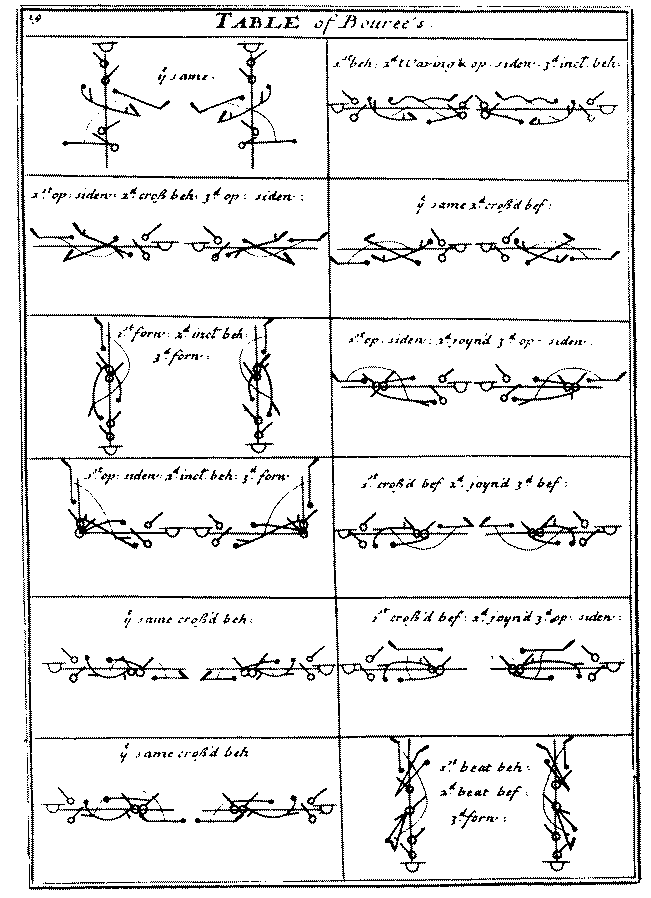 19
TABLE of Bouree's.
ẙ same.
1st beh: 2d Waving & op: siden: 3d incl: beh:
1st op: siden: 2d croß beh: 3d op: siden:
ẙ same 2d croß'd bef:
1st forw: 2d incl: beh:
3d forw:
1st op: siden: 2d joyn'd 3d op: siden:
1st op: siden: 2d incl: beh: 3d forw
1st croß'd bef 2d joyn'd 3d bef:
ẙ same croß'd beh:
1st croß'd bef: 2d joyn'd 3d op: siden:
ẙ same croß'd beh
1st beat beh:
2d beat bef:
3d forw: